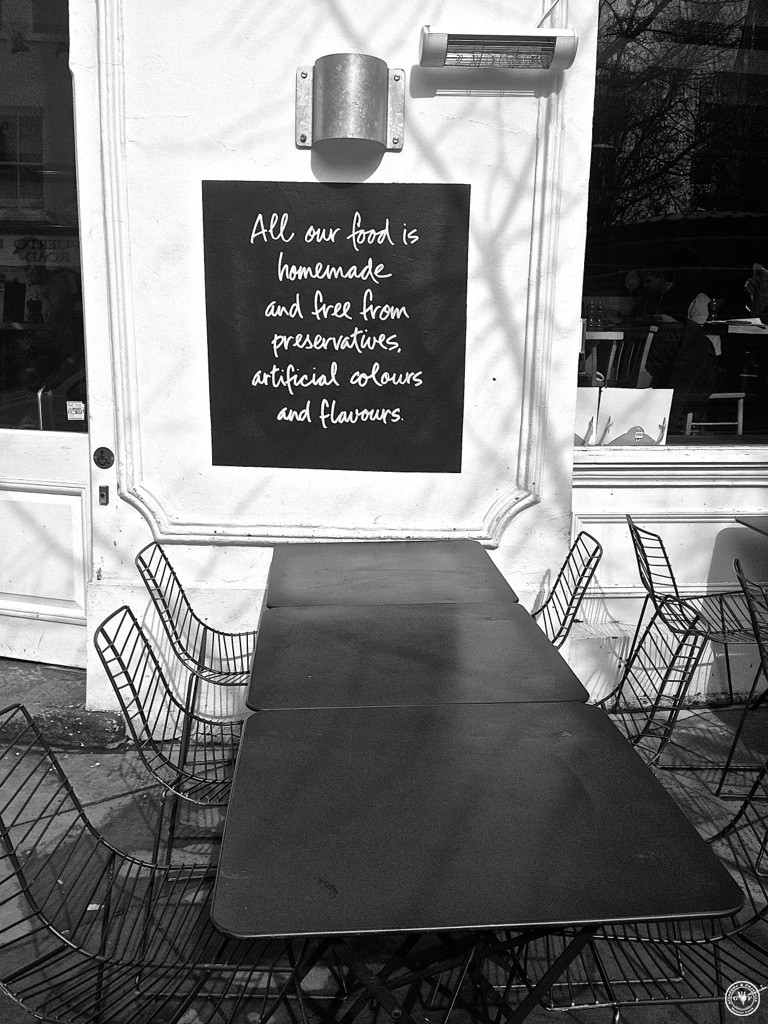 All our food is
homemade
and free from
preservatives,
artificial colours
and flavours.